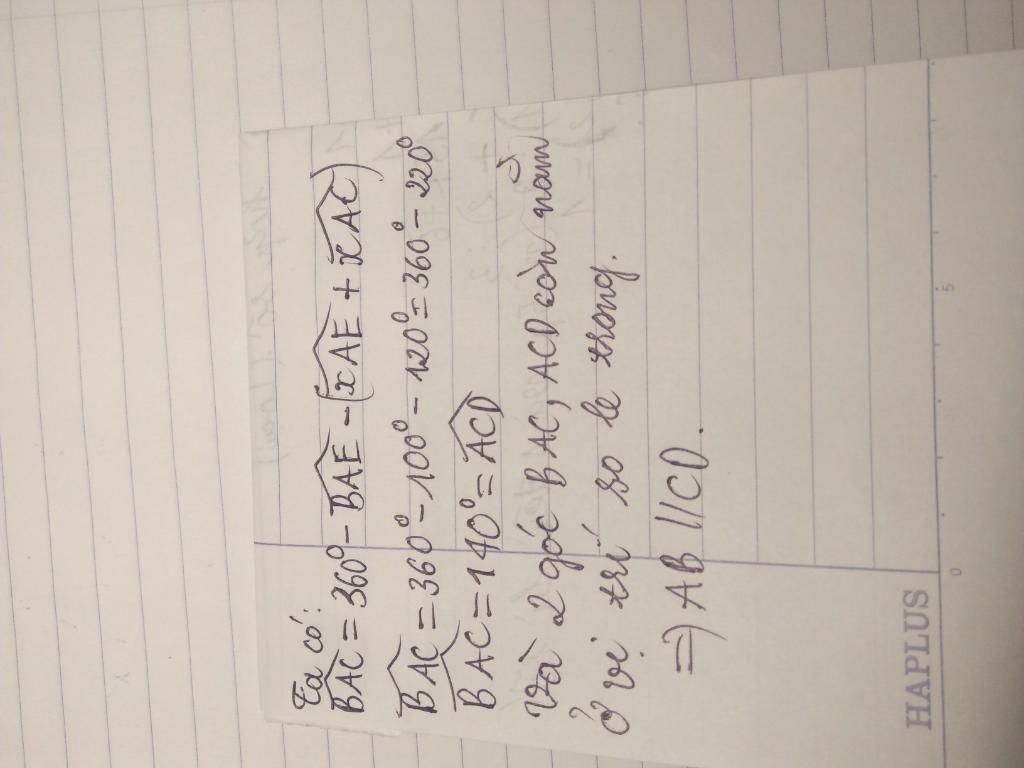 Ta có:
BAC = 360° - BAE - (xAE + xAC)
BAC = 360° - 100° - 120° = 360° - 220°
BAC = 140° = ACD
Và 2 góc BAC, ACD còn nằm
Ở vị trí so le trong.
=> AB // CD.
HAPLUS
0
5